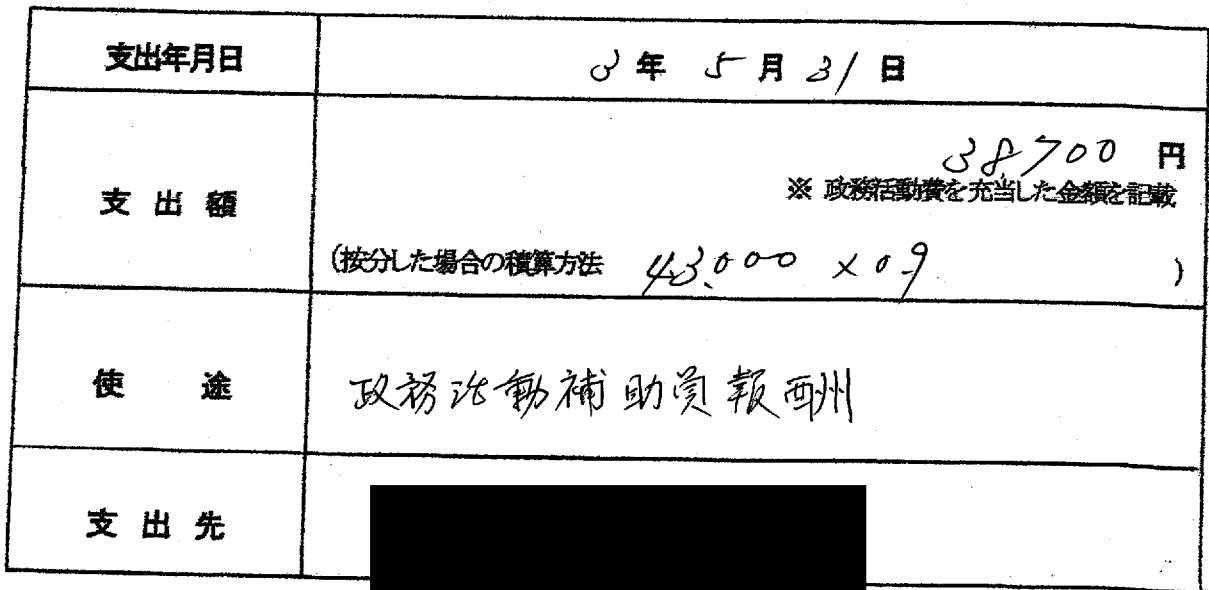 支出年月日 3年 5月 31日
支出額
38,700 円
※ 政務活動費を充当した金額を記載
(按分した場合の積算方法 43,000 × 0.9 )
使途 政務活動補助員報酬
支出先